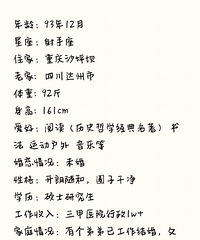 年龄：93年12月
星座：射手座
住家：重庆沙坪坝
老家：四川达州市
体重：92斤
身高：161cm
爱好：阅读（历史哲学经典名著）书
法 运动户外 音乐等
婚恋情况：未婚
性格：开朗随和，圈子干净
学历：硕士研究生
工作收入：三甲医院行政1w+
家庭情况：有个弟弟已工作结婚，父